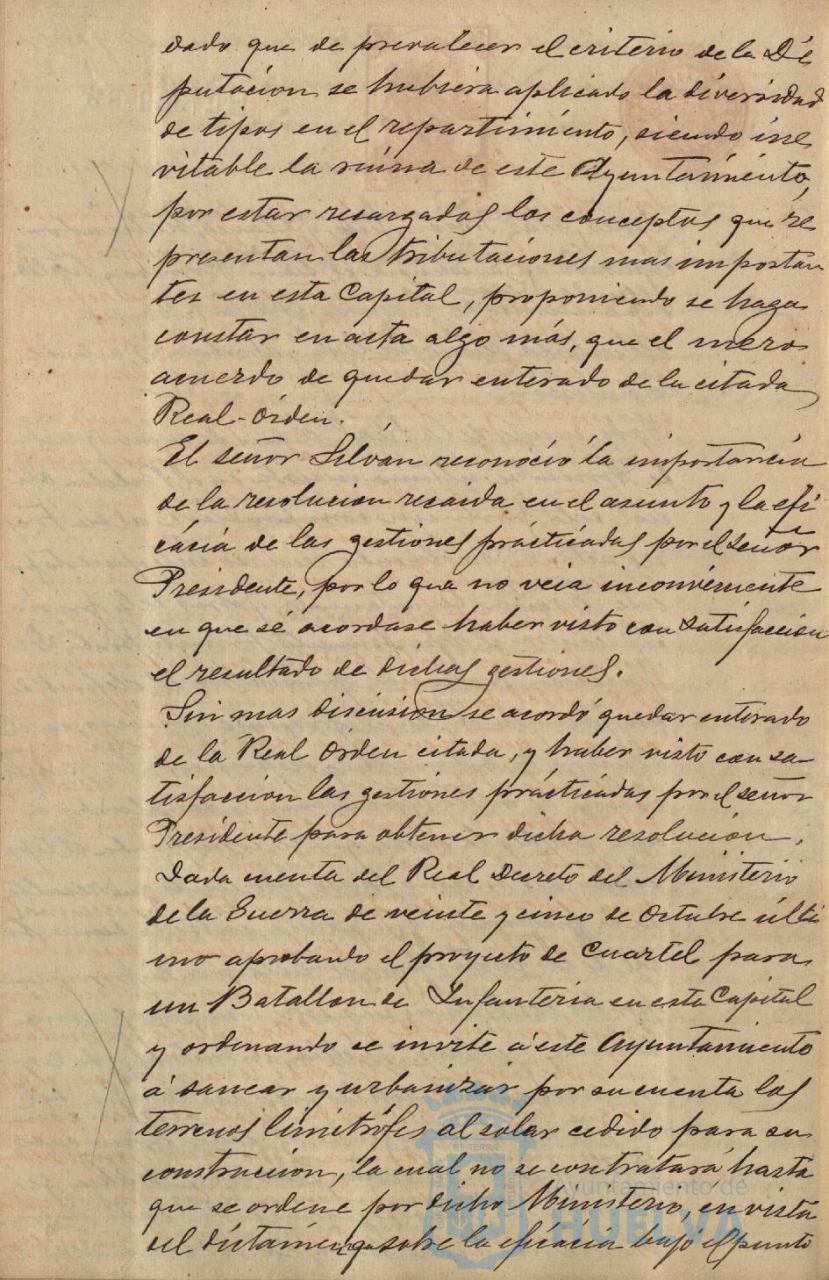 dado que de prevalecer el criterio de la Di
putacion se hubiera aplicado la diversidad
de tipos en el repartimiento, siendo ine
vitable la ruina de este Ayuntamiento,
por estar recargados los conceptos que re
presentan las tributaciones mas importan
tes en esta Capital, proponiendo se haga
constar en acta algo más, que el mero
acuerdo de quedar enterado de la citada
Real-Órden.
El señor Silván reconoció la importancia
de la resolucion recaida en el asunto y la efi
cácia de las gestiones prácticadas por el señor
Presidente, por lo que no veia inconveniente
en que se acordase haber visto con satisfaccion
el resultado de dichas gestiones.
Sin mas discusion se acordó quedar enterado
de la Real Órden citada, y haber visto con sa-
tisfaccion las gestiones prácticadas por el señor
Presidente para obtener dicha resolucion.
Dada cuenta del Real Decreto del Ministerio
de la Guerra de veinte y cinco de Octubre últi
mo aprobando el proyecto de Cuartel para
un Batallon de Infanteria en esta Capital
y ordenando se invite á este Ayuntamiento
á sanear y urbanizar por su cuenta los
terrenos limítrofes al solar cedido para su
construccion, la cual no se contratará hasta
que se ordene por dicho Ministerio, en vista
del dictámen que sobre la eficácia bajo el punto
Ayuntamiento de
HUELVA